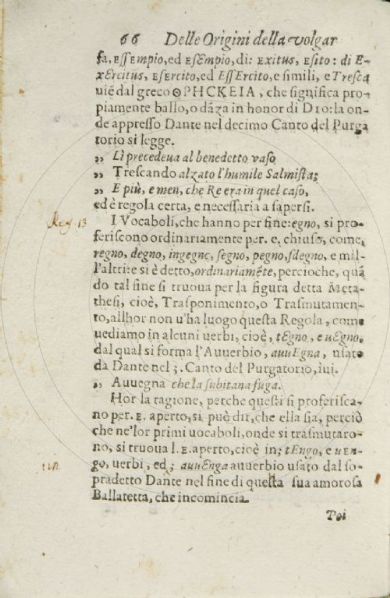 66 Delle Origini della volgar
fa, ESSEmpio, ed ESEmpio, di: EXitus, ESito: di E-
xERcitus, ESERcito, ed ESSERcito, e simili, e TRESca
uiē dal greco ΘΡΗCΚΕΙΑ, che significa pro-
piamente ballo, o dāza in honor di DIO: la on-
de appresso Dante nel decimo Canto del Purga
torio si legge.
„ Lì precedeua al benedetto vaso
„ Trescando alzato l'humile Salmista;
„ E più, e men, che Re era in quel caso,
ed è regola certa, e necessaria a sapersi.
Reg. 13
I Vocaboli, che hanno per fine: egno, si pro-
feriscono ordinariamente per. e, chiuso, come,
regno, degno, ingegno, segno, pegno, sdegno, e mil-
l'altri: e si è detto, ordinariamēte, percioche, quā
do tal fine si truoua per la figura detta Meta-
thesi, cioè, Trasponimento, o Trasmutamen-
to, allhor non u'ha luogo questa Regola, come
uediamo in alcuni uerbi, cioè, tEgno, e uEgno,
dal qual si forma l'Auuerbio, auuEgna, usato
da Dante nel 3. Canto del Purgatorio, iui.
„ Auuegna che la subitana fuga.
Hor la ragione, perche questi si proferisca-
no per. E. aperto, si può dir, che ella sia, perciò
che ne'lor primi uocaboli, onde si trasmutaro-
no, si truoua l. E. aperto, cioè in; tEngo, e uEn-
go, uerbi, ed; auuEnga auuerbio usato dal so-
pradetto Dante nel fine di questa sua amorosa
Ballatetta, che incomincia.
Poi